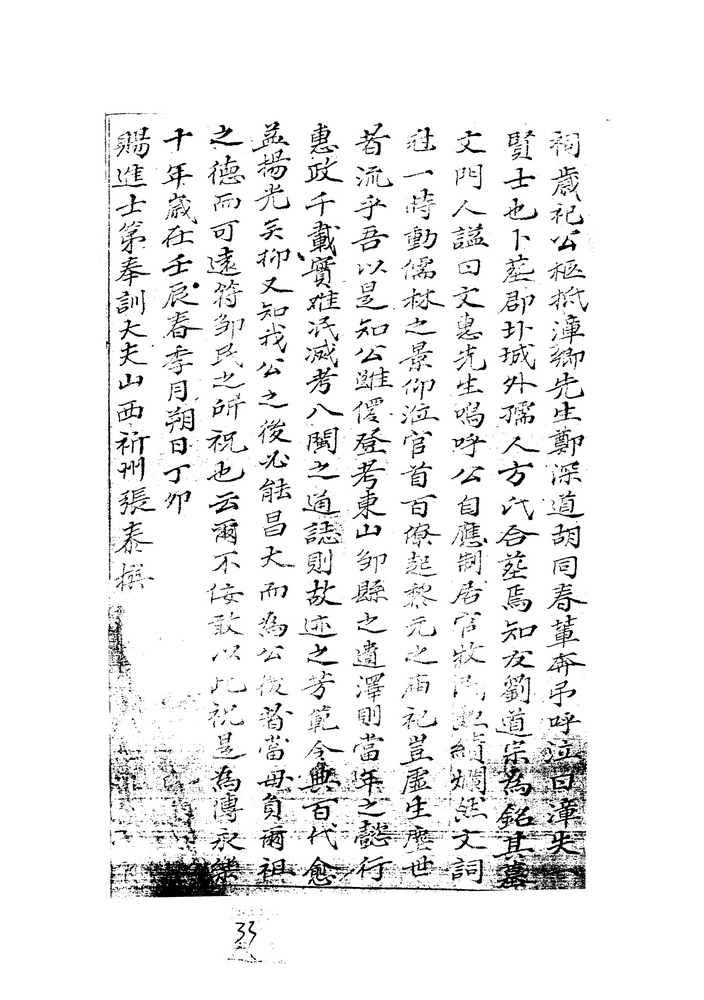 祠歲祀公柩抵漳鄉先生鄭深道胡同春輩奔吊呼泣曰漳失一
賢士也卜塟郡圤城外孺人方氏合塟焉知友劉道宗為銘其墓
文門人諡曰文惠先生嗚呼公自應制居官牧民政績嫻然文詞
冠一時動儒林之景仰泣官首百僚起黎元之庙祀豈虛生塵世
者流乎吾以是知公雖僊登考東山邹縣之遺澤則當年之懿行
惠政千載實难泯滅考八閩之通誌則故迹之芳範令典百代愈
益揚光矣抑又知我公之後必能昌大而為公後者當毋負爾祖
之德而可遠符邹民之所祝也云爾不佞敢以此祝是為傳永樂
十年歲在壬辰春季月朔日丁卯
賜進士第奉訓大夫山西祈州張泰撰
33